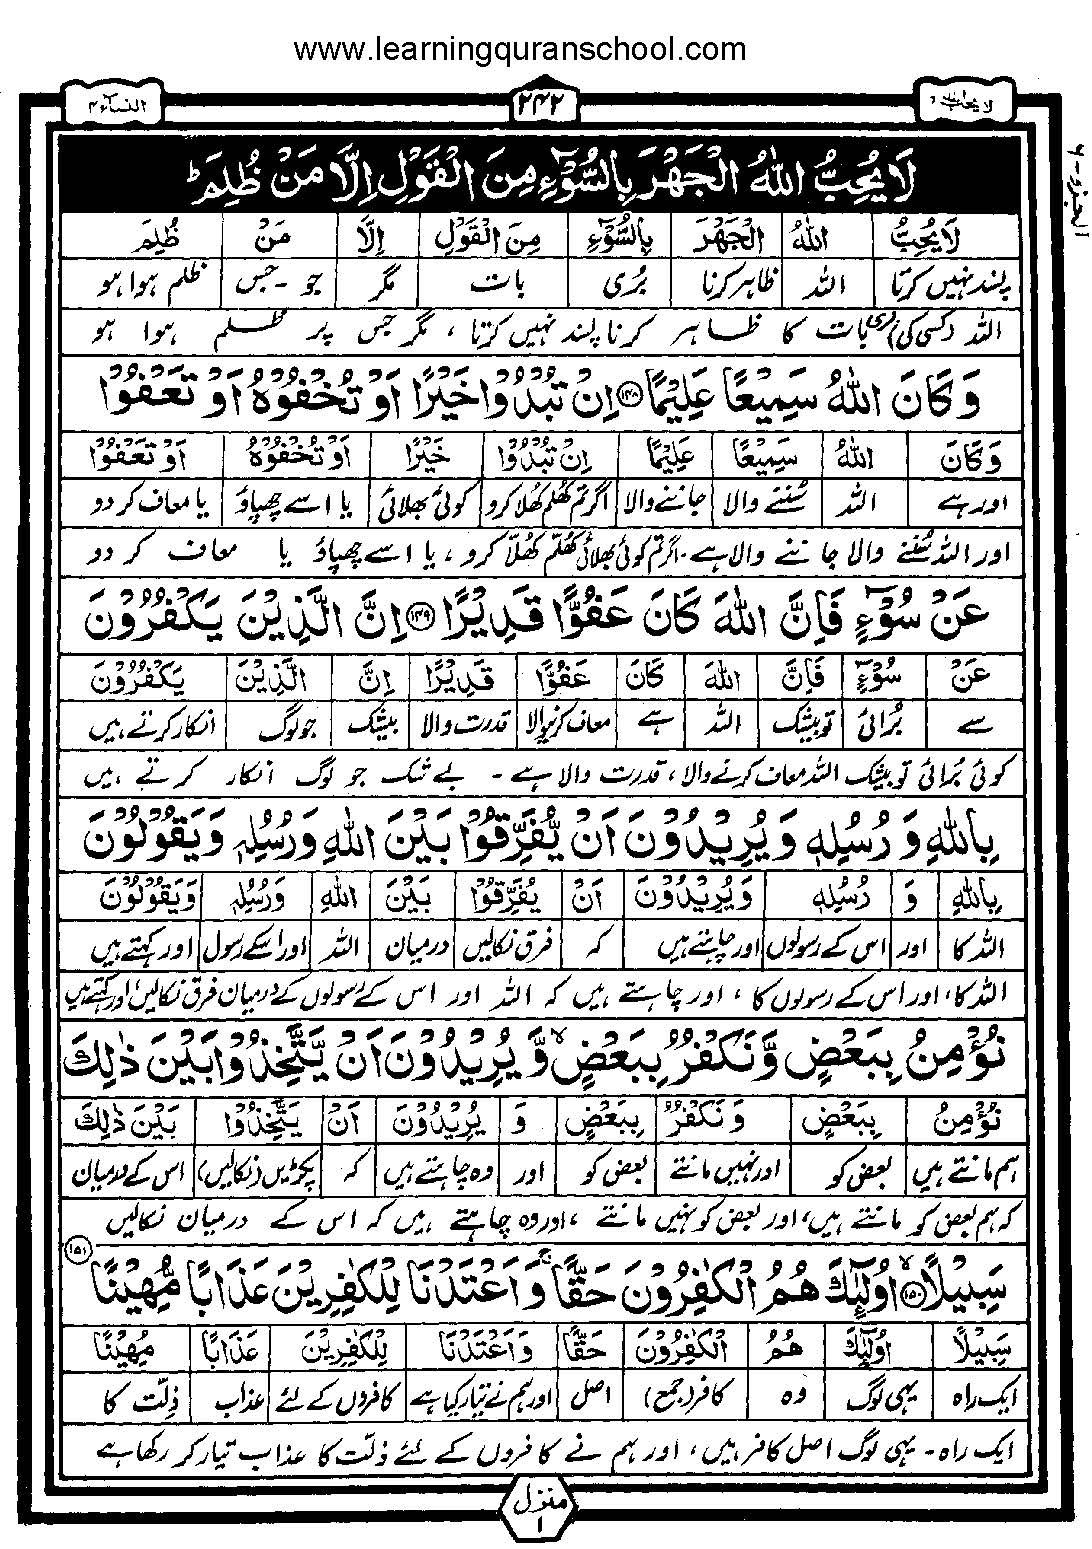 www.learningquranschool.com
لا یحب اللہ ۶ ۲۴۲ النسآء ۴
الجزء-۶
لَا يُحِبُّ اللّٰهُ الْجَهْرَ بِالسُّوْٓءِ مِنَ الْقَوْلِ اِلَّا مَنْ ظُلِمَ ؕ
لَا يُحِبُّ اللّٰهُ الْجَهْرَ بِالسُّوْٓءِ مِنَ الْقَوْلِ اِلَّا مَنْ ظُلِمَ
پسند نہیں کرتا اللہ ظاہر کرنا بُری بات مگر جو - جس ظلم ہوا ہو
اللہ (کسی کی) بُری بات کا ظاہر کرنا پسند نہیں کرتا ، مگر جس پر ظلم ہوا ہو
وَ كَانَ اللّٰهُ سَمِيْعًا عَلِيْمًا ﴿۱۴۸﴾ اِنْ تُبْدُوْا خَيْرًا اَوْ تُخْفُوْهُ اَوْ تَعْفُوْا
وَ كَانَ اللّٰهُ سَمِيْعًا عَلِيْمًا اِنْ تُبْدُوْا خَيْرًا اَوْ تُخْفُوْهُ اَوْ تَعْفُوْا
اور ہے اللہ سُننے والا جاننے والا اگر تم کھُلم کھُلا کرو کوئی بھلائی یا اسے چھپاؤ یا معاف کر دو
اور اللہ سُننے والا جاننے والا ہے - اگر تم کوئی بھلائی کھُلم کھُلّا کرو ، یا اسے چھپاؤ یا معاف کر دو
عَنْ سُوْٓءٍ فَاِنَّ اللّٰهَ كَانَ عَفُوًّا قَدِيْرًا ﴿۱۴۹﴾ اِنَّ الَّذِيْنَ يَكْفُرُوْنَ
عَنْ سُوْٓءٍ فَاِنَّ اللّٰهَ كَانَ عَفُوًّا قَدِيْرًا اِنَّ الَّذِيْنَ يَكْفُرُوْنَ
سے بُرائی تو بیشک اللہ ہے معاف کرنیوالا قدرت والا بیشک جو لوگ انکار کرتے ہیں
کوئی بُرائی تو بیشک اللہ معاف کرنے والا ، قدرت والا ہے - بے شک جو لوگ انکار کرتے ہیں
بِاللّٰهِ وَ رُسُلِهٖ وَ يُرِيْدُوْنَ اَنْ يُّفَرِّقُوْا بَيْنَ اللّٰهِ وَ رُسُلِهٖ وَ يَقُوْلُوْنَ
بِاللّٰهِ وَ رُسُلِهٖ وَ يُرِيْدُوْنَ اَنْ يُفَرِّقُوْا بَيْنَ اللّٰهِ وَ رُسُلِهٖ وَ يَقُوْلُوْنَ
اللہ کا اور اس کے رسولوں اور چاہتے ہیں کہ فرق نکالیں درمیان اللہ اور اسکے رسول اور کہتے ہیں
اللہ کا ، اور اس کے رسولوں کا ، اور چاہتے ہیں کہ اللہ اور اس کے رسولوں کے درمیان فرق نکالیں ، اور کہتے ہیں
نُؤْمِنُ بِبَعْضٍ وَّ نَكْفُرُ بِبَعْضٍ ۙ وَّ يُرِيْدُوْنَ اَنْ يَّتَّخِذُوْا بَيْنَ ذٰلِكَ
نُؤْمِنُ بِبَعْضٍ وَ نَكْفُرُ بِبَعْضٍ وَ يُرِيْدُوْنَ اَنْ يَتَّخِذُوْا بَيْنَ ذٰلِكَ
ہم مانتے ہیں بعض کو اور نہیں مانتے بعض کو اور وہ چاہتے ہیں کہ پکڑیں (نکالیں) اس کے درمیان
کہ ہم بعض کو مانتے ہیں ، اور بعض کو نہیں مانتے ، اور وہ چاہتے ہیں کہ اس کے درمیان نکالیں
سَبِيْلًا ۙ﴿۱۵۰﴾ اُولٰٓئِكَ هُمُ الْكٰفِرُوْنَ حَقًّا ۚ وَ اَعْتَدْنَا لِلْكٰفِرِيْنَ عَذَابًا مُّهِيْنًا ﴿۱۵۱﴾
سَبِيْلًا اُولٰٓئِكَ هُمُ الْكٰفِرُوْنَ حَقًّا وَ اَعْتَدْنَا لِلْكٰفِرِيْنَ عَذَابًا مُهِيْنًا
ایک راہ یہی لوگ وہ کافر (جمع) اصل اور ہم نے تیار کیا ہے کافروں کے لئے عذاب ذلّت کا
ایک راہ - یہی لوگ اصل کافر ہیں ، اور ہم نے کافروں کے لئے ذلّت کا عذاب تیار کر رکھا ہے
منزل ۱